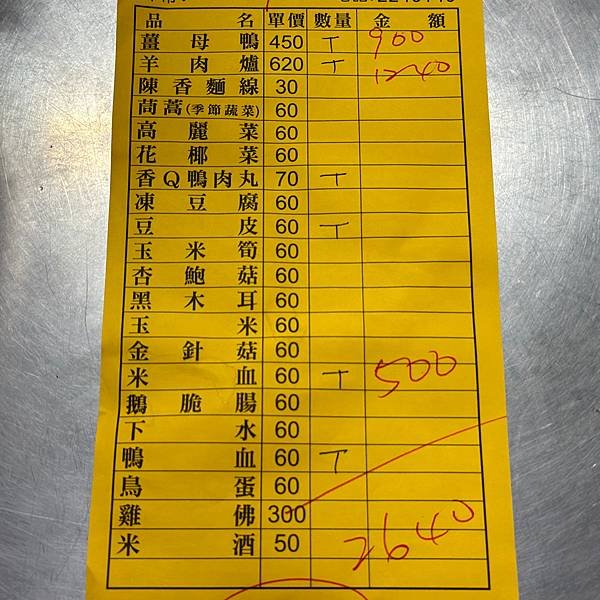 品名 單價 數量 金額
薑母鴨 450 T 900
羊肉爐 620 T 1240
陳香麵線 30
茼蒿(季節蔬菜) 60
高麗菜 60
花椰菜 60
香Q鴨肉丸 70 T
凍豆腐 60
豆皮 60 T
玉米筍 60
杏鮑菇 60
黑木耳 60
玉米 60
金針菇 60
米血 60 T 500
鵝脆腸 60
下水 60
鴨血 60 T
鳥蛋 60
雞佛 300
米酒 50 2640